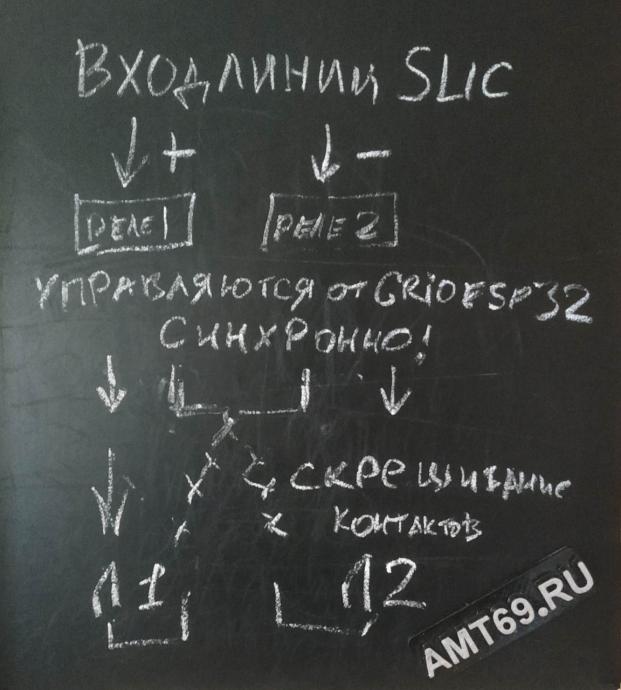 ВХОД ЛИНИИ SLIC
+ −
РЕЛЕ 1 РЕЛЕ 2
УПРАВЛЯЮТСЯ ОТ GPIO ESP32
СИНХРОННО!
СКРЕЩИВАНИЕ
КОНТАКТОВ
Л1 Л2
AMT69.RU